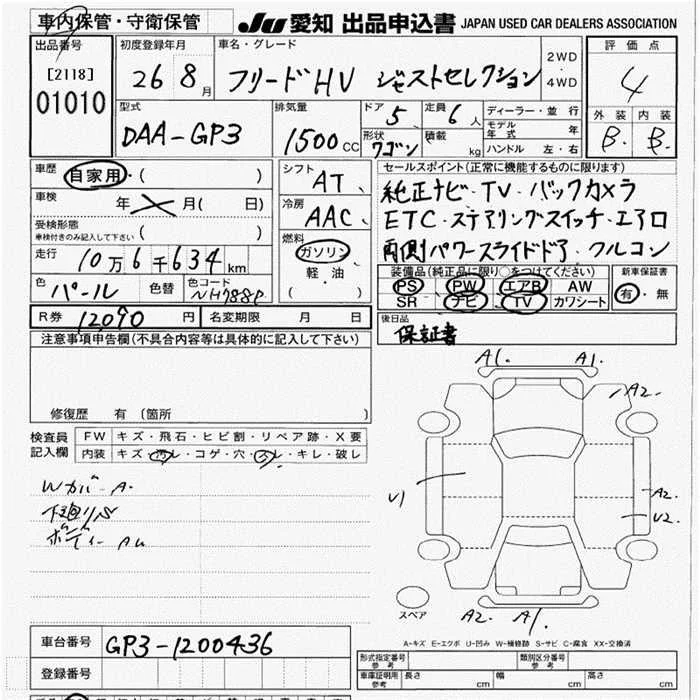 車内保管・守衛保管
JU 愛知 出品申込書 JAPAN USED CAR DEALERS ASSOCIATION
出品番号
[2118]
01010
初度登録年月
26 8月
車名・グレード
フリードHV ジャストセレクション
2WD
4WD
評価点
4
外装 内装
B. B.
型式
DAA-GP3
排気量
1500 CC
ドア 5
定員 6 人
形状 ワゴン
積載 kg
ディーラー・並行
モデル年式 年
ハンドル 左・右
車歴
自家用・( )
車検
年 月( 日)
受検形態
車検付きのみ記入して下さい ( )
走行
10万6千634 km
色
パール
色替
色コード
NH788P
シフト
AT
冷房
AAC
燃料
ガソリン
軽・油
( )
セールスポイント(正常に機能するものに限ります)
純正ナビ・TV・バックカメラ
ETC・ステアリングスイッチ・エアロ
両側パワースライドドア・フルコン
装備品(純正品に限り○をつけてください)
PS PW エアB AW
SR ナビ TV カワシート
新車保証書
有・無
R券 12090 円
名変期限 月 日
後日品
保証書
注意事項申告欄(不具合内容等は具体的に記入して下さい)
修復歴 有(箇所 )
検査員記入欄
FW キズ・飛石・ヒビ割・リペア跡・X要
内装 キズ・汚レ・コゲ・穴・スレ・キレ・破レ
Wカバー A.
下廻りS
ボディー
A1. A1.
A2.
U1
A2
U2
スペア
A2. A1.
A-キズ E-エクボ U-凹み W-補修跡 S-サビ C-腐食 XX-交換済
車台番号
GP3-1200436
登録番号
形式指定番号 参考
類別区分番号 参考
車庫証明用 参考 長さ cm 幅 cm 高さ cm